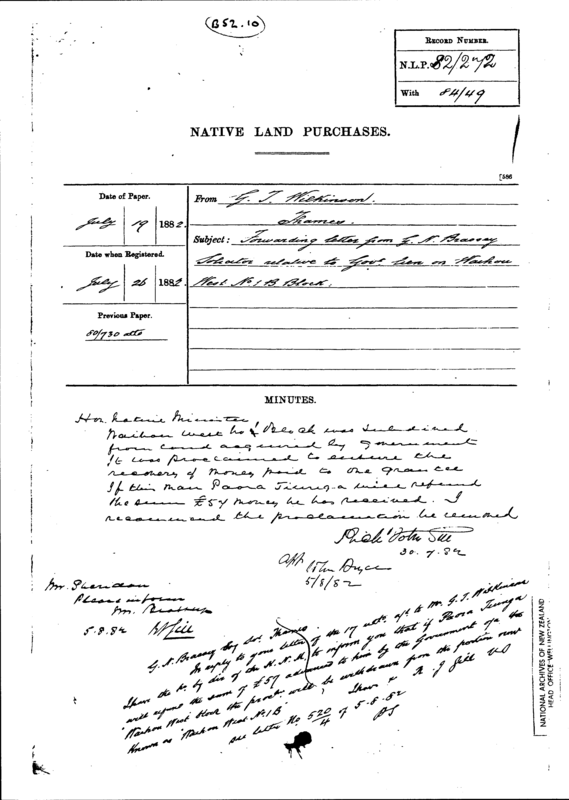 (B52.10)
RECORD NUMBER.
N.L.P. 82/272
With 84/49
NATIVE LAND PURCHASES.
[586
Date of Paper.
July 19 1882.
Date when Registered.
July 26 1882.
Previous Paper.
80/730 atto
From G. T. Wilkinson.
Thames.
Subject: Forwarding letter from G. N. Brassey
Solicitor relative to Govt lien on Waihou
West No 1 B Block.
MINUTES.
Hon. Native Minister
Waihou West No 1 Block was subdivided
from land acquired by Government
It was proclaimed to ensure the
recovery of money paid to one Grantee
If this man Paora Tiunga will refund
the sum £57 money he has received. I
recommend the proclamation be removed
Gill
20.7.82
John Bryce
5/8/82
Mr. Sheridan
Please inform
Mr.
5.8.82 Gill
G. N. Brassey Esq Sol. Thames
In reply to your letter of the 17 ulto. to Mr. G. T. Wilkinson
I have the by dir of the H. N. M. to inform you that if Paora Tiunga
will repay the sum of £57 advanced to him by the Government a/c the
"Waihou West" Block the proct. will be withdrawn from the portion now
known as "Waihou West No. 1B" I have & R J Gill US
See letter No 520/4 of 5.8.82
PS
NATIONAL ARCHIVES OF NEW ZEALAND
HEAD OFFICE WELLINGTON